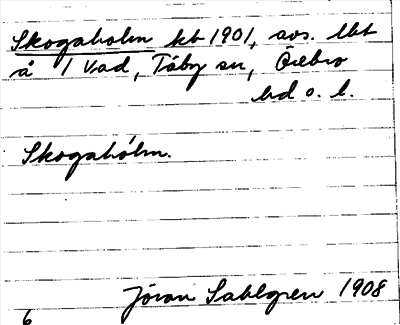 Skogaholm kt 1901, avs. lht
å 1 Vad, Täby sn, Örebro
hd o. l.
Skogahólm.
Jöran Sahlgren 1908
6